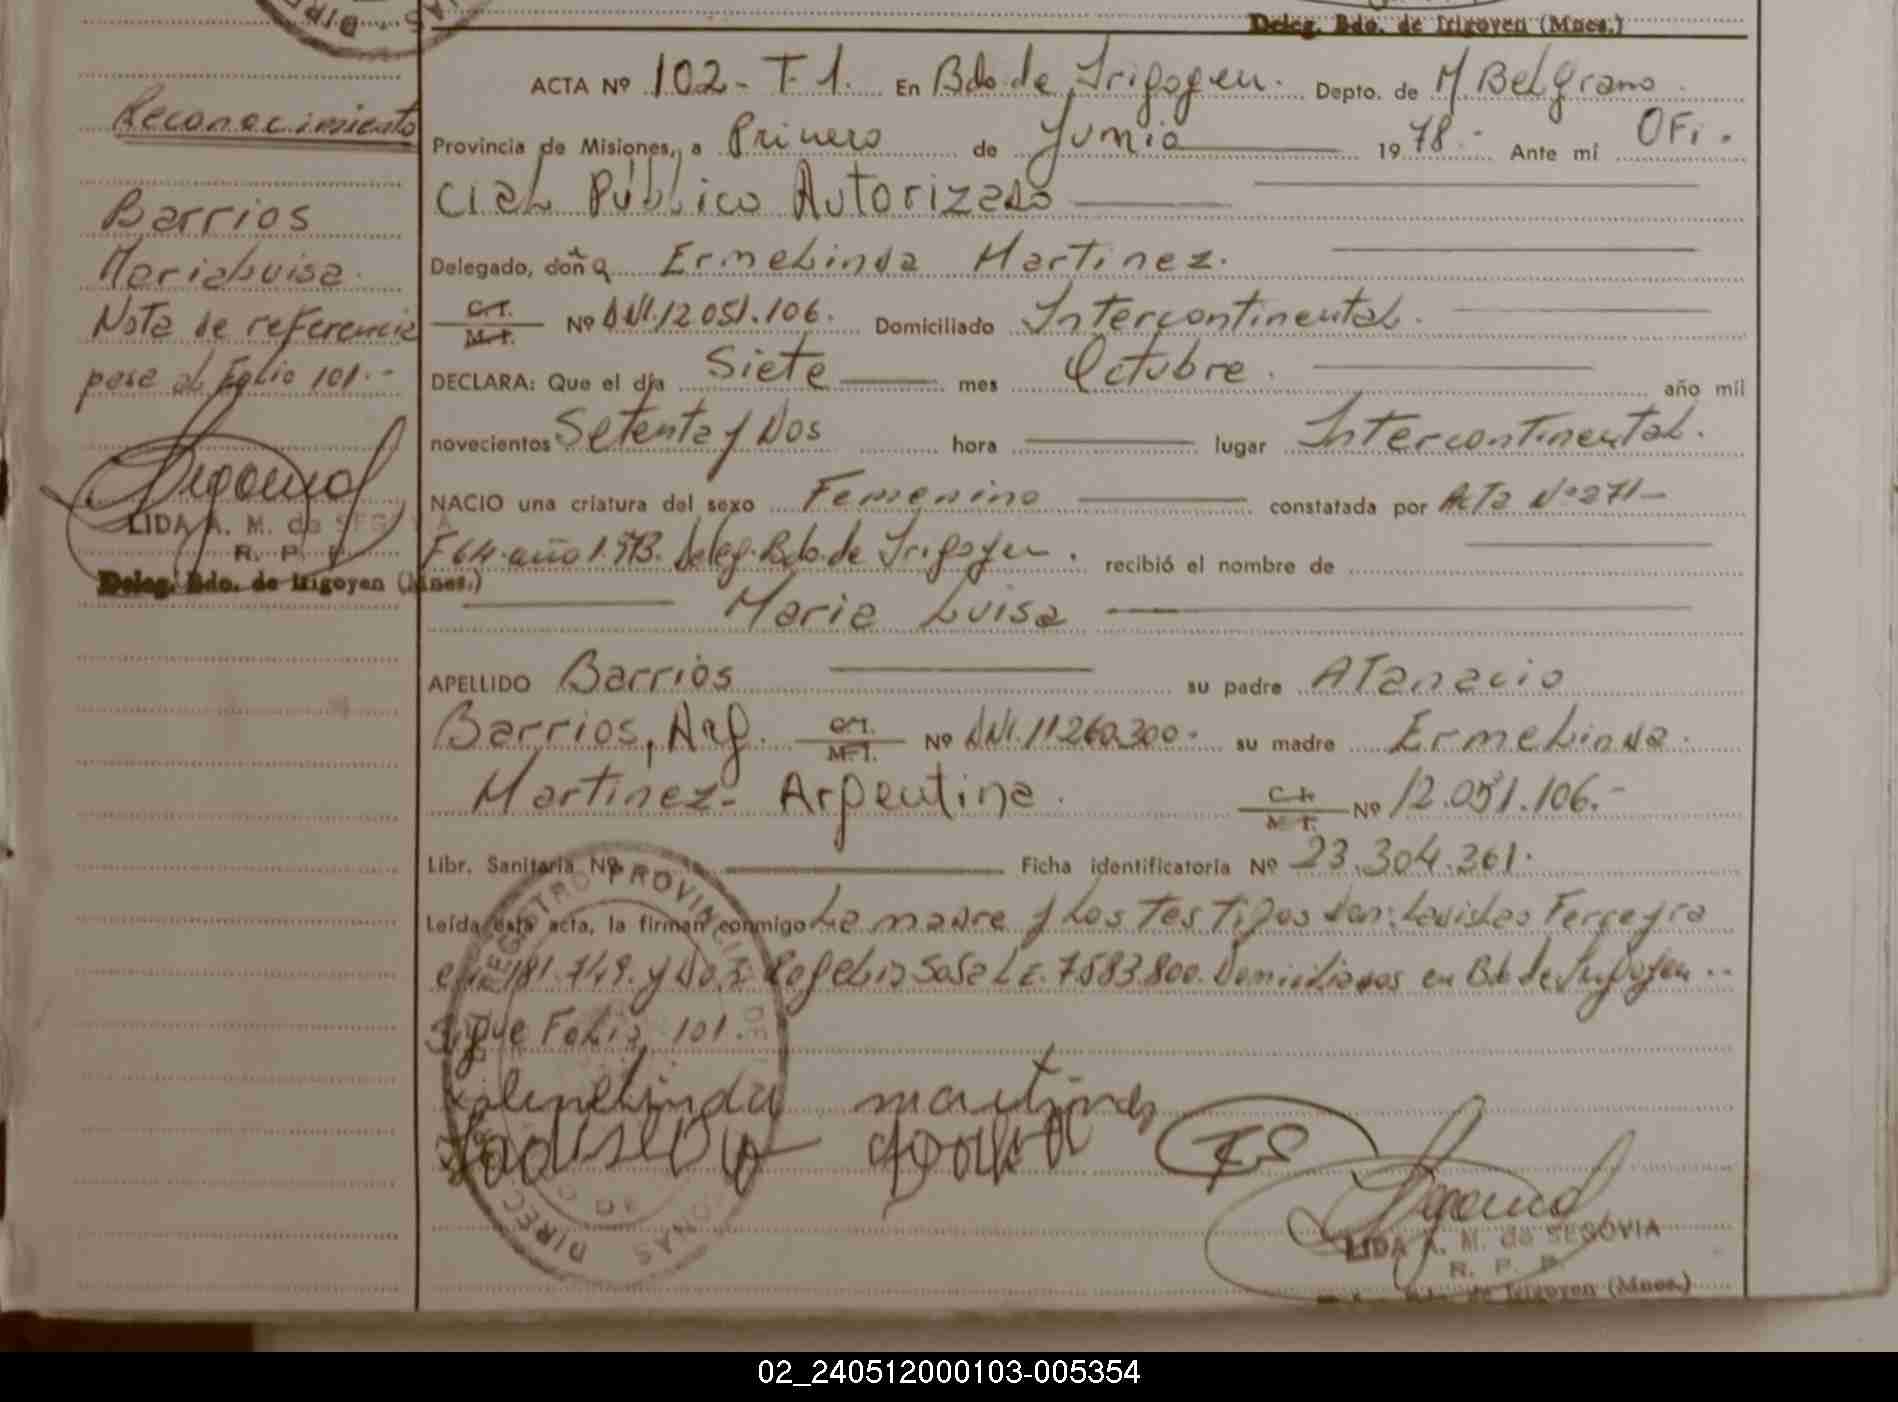 Deleg. Bdo. de Irigoyen (Mnes.)
ACTA Nº 102 - T. 1. En Bdo. de Irigoyen. Depto. de M Belgrano
Provincia de Misiones, a Primero de Junio 1978.- Ante mí OFi-
cial Público Autorizado
Delegado, doña Ermelinda Martinez.
C.I. M.I. Nº DNI.12051.106. Domiciliado Intercontinental.
DECLARA: Que el día Siete mes Octubre. año mil
novecientos Setenta y Dos hora lugar Intercontinental.
NACIO una criatura del sexo Femenino constatada por Acta Nº 271-
F 64. año 1.973. Deleg. Bdo. de Irigoyen. recibió el nombre de
Maria Luisa
APELLIDO Barrios su padre Atanacio
Barrios, Arg. C.I. M.I. Nº DNI.11260.300. su madre Ermelinda
Martinez- Argentina. C.I. M.I. Nº 12.051.106.-
Libr. Sanitaria Nº Ficha identificatoria Nº 23.304.361.
Leída esta acta, la firman conmigo La madre y Los Testigos Don: Ladislao Ferreyra
181.749. y Don Rogelio Sosa L.E. 7583.800. Domiciliados en Bdo de Irigoyen..
Sigue Folio 101.
martinez
LIDA A. M. de SEGOVIA
R. P. P.
Deleg. Bdo. de Irigoyen (Mnes.)
Reconocimiento
Barrios
Maria Luisa.
Nota de referencia
pase al Folio 101.-
LIDA A. M. de SEGOVIA
R. P. P.
Deleg. Bdo. de Irigoyen (Mnes.)
REGISTRO PROVINCIAL DE
DIREC
02_240512000103-005354